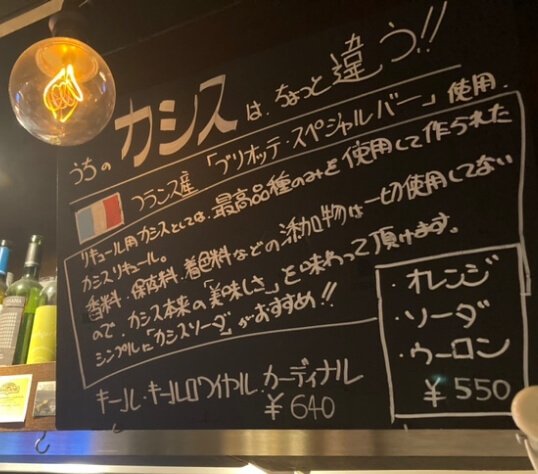 うちの カシス は、ちょっと違う!!
フランス産 「ブリオッテ・スペシャルバー」使用.
リキュール用カシスとしては、最高品種のみを使用して作られた
カシスリキュール。
香料・保存料・着色料などの添加物は一切使用してない
ので、カシス本来の「美味しさ」を味わって頂けます。
シンプルに「カシスソーダ」がおすすめ!!
キール・キールロワイヤル・カーディナル
￥640
・オレンジ
・ソーダ
・ウーロン
￥550